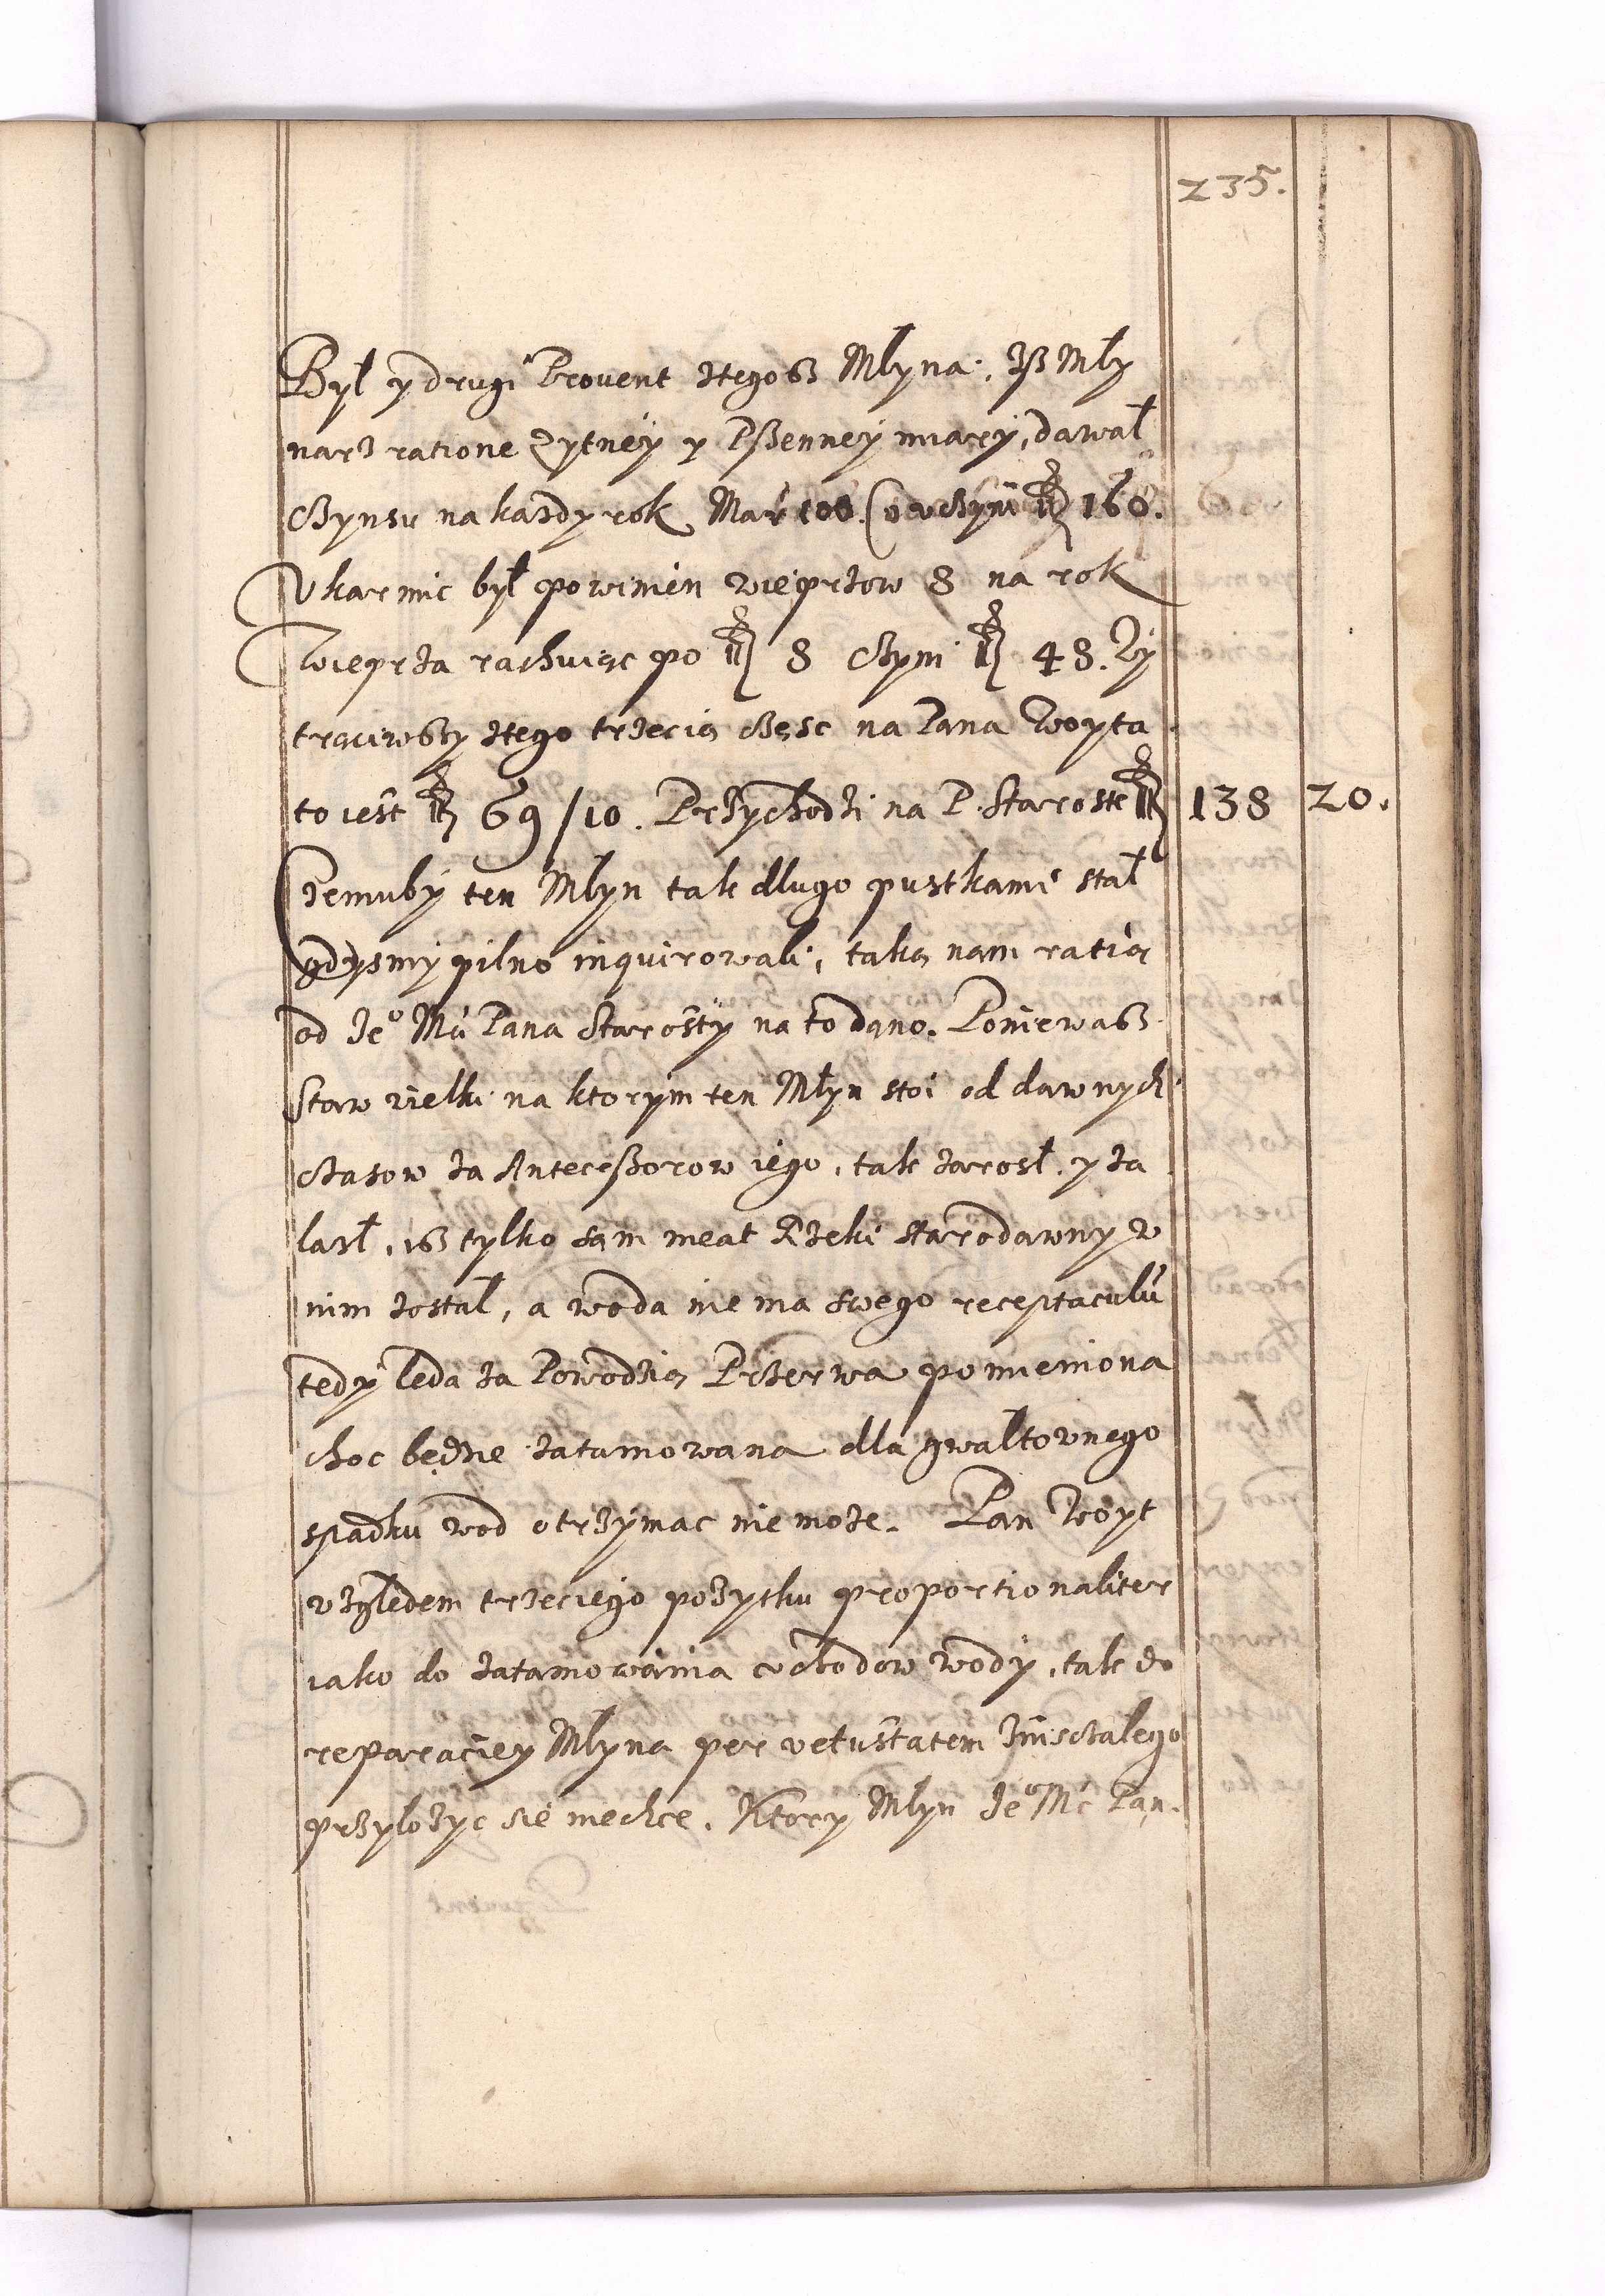 235.
Był y drugi Provent ztegosz Młyna, Isz Mły
narz ratione Zytney y Pszenney miary, dawał
Czynsu na kazdy rok Mar 100. co uczyni fl 160.
Vkarmic był powinien wieprzow 8 na rok
Wieprza rachuiąc po fl 8 Czyni fl 48. Wy
traciwszy ztego trzecią częsc na Pana Woyta
to iest fl 69/10. Przychodzi na P. Staroste fl 138 20.
Czemuby ten Młyn tak dlugo pustkami stał
gdysmy pilno inquirowali, taką nam ratią
od Je° Mci Pana Starosty na to dano. Poniewasz
Staw wielki na ktorym ten Młyn stoi od dawnych
Czasow za Antecessorow iego, tak zarosł y za
lazł, isz tylko sam meat Rzeki starodawny w
nim zostal, a woda nie ma swego receptaculu
tedy leda za Powodzią Przerwa pomieniona
choc będzie zatamowana dla gwaltownego
spadku wod otrzymac nie moze. Pan Woyt
względem trzeciego pozytku proportionaliter
iako do zatamowania wchodow wody, tak do
reparaciey Młyna per vetustatem zniszczalego
przylozyc sie niechce. Ktory Młyn Je° Mc Pan.